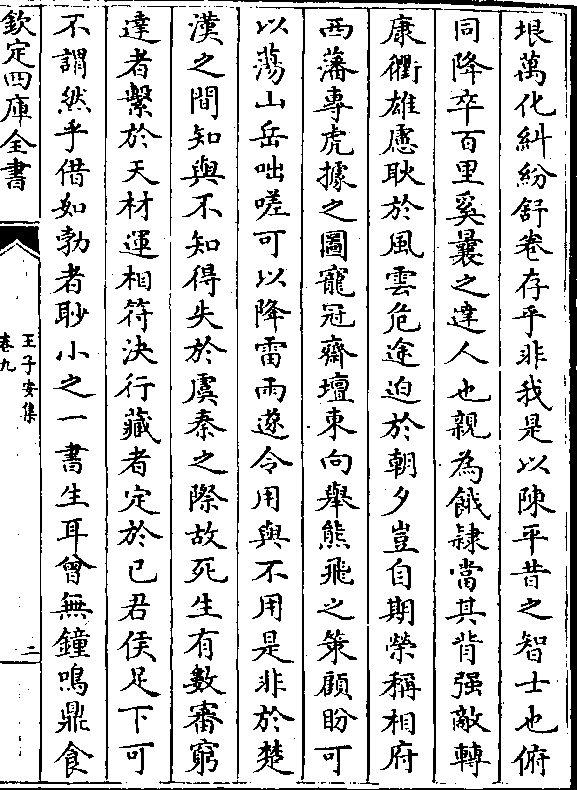 垠萬化糾紛舒卷存乎非我是以陳平昔之智士也俯
同降卒百里奚曩之達人也親為餓隷當其背强敵轉
康衢雄慝耿於風雲危途迫於朝夕豈自期榮稱相府
西藩專虎據之圖寵冠齋壇東向舉熊飛之策顧盼可
以蕩山岳咄嗟可以降雷雨遂令用與不用是非於楚
漢之間知與不知得失於虞秦之際故死生有數審窮
達者繫於天材運相符決行藏者定於已君侯足下可
不謂然乎借如勃者眇小之一書生耳曾無鐘鳴鼎食
欽定四庫全書
王子安集
卷九
二